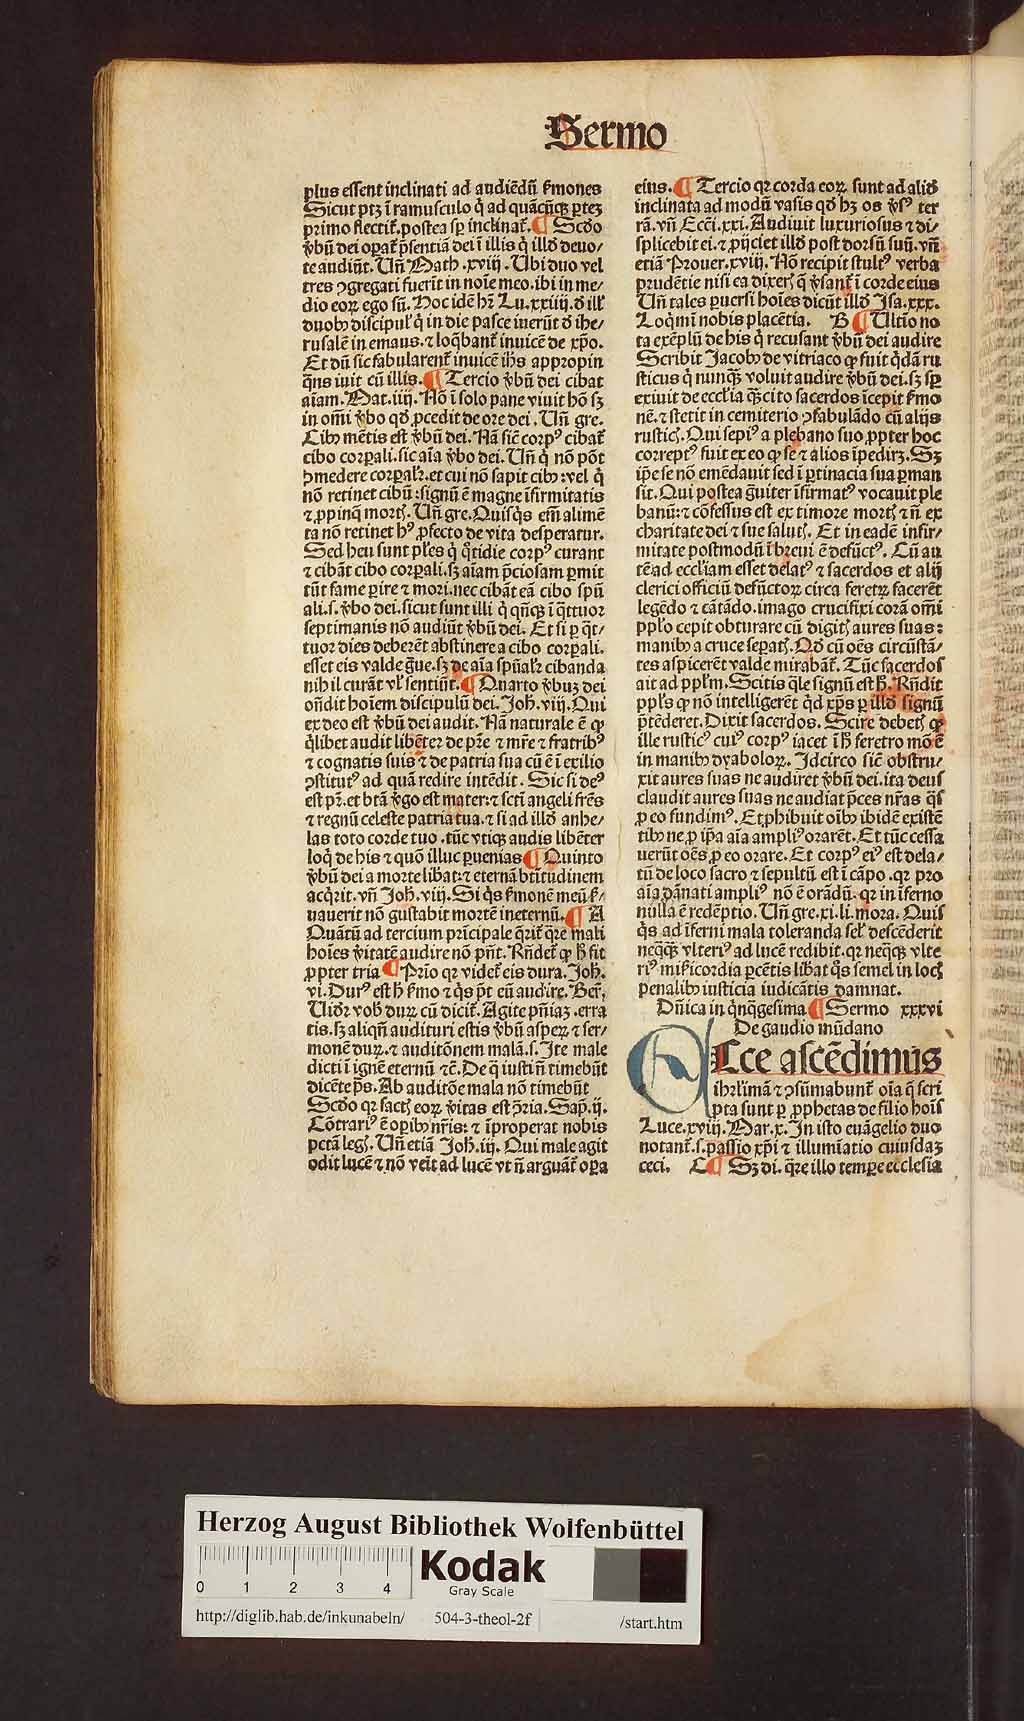 Sermo
plus essent inclinati ad audiēdū s̄mones
Sicut ptꝫ ī ramusculo q̇ ad quācūqꝫ ꝑteꝫ
primo flectit᷑.postea sꝑ inclinat᷑.¶ Scd̄o
v̄bū dei oꝑat᷑ p̄sentiā dei ī illis q̇ illd̄ deuo⸗
te audiūt.Uñ Math.xviij.Ubi duo vel
tres ꝯgregati fuerīt in noīe meo.ibi in me⸗
dio eoꝝ ego sū.Hoc idē hr̄ Lu.xxiiij.d̄ ill'
duobꝰ discipul' q̇ in die pasce iuerūt d̄ ihe⸗
rusalē in emaus.⁊ loq̄bant᷑ inuicē de xp̄o.
Et dū sic fabularent᷑ inuicē ihs appropin
q̄ns iuit cū illis.¶ Tercio v̄bū dei cibat
aīam.Mat.iiij.Nō ī solo pane viuit hō sꝫ
in om̄i v̄bo qd̄ ꝓcedit de ore dei.Uñ gre.
Cibꝰ mētis est v̄bū dei.Nā sic̄ corpꝰ cibat᷑
cibo corꝑali.sic aīa v̄bo dei.Uñ q̇ nō pōt
ꝯmedere corꝑalr̄.et cui nō sapit cibꝰ:vel q̇
nō retinet cibū:signū ē magne īfirmitatis
⁊ ꝓpinq̄ mortꝭ.Uñ gre.Quisq̇s em̄ alimē
ta nō retinet hꝰ ꝓfecto de vita desperatur.
Sed heu sunt pl̄es q̇ q̊tidie corpꝰ curant
⁊ cibāt cibo corꝑali.sꝫ aīam p̄ciosam ꝑmit
tūt fame ꝑire ⁊ mori.nec cibāt eā cibo spū
ali.s.v̄bo dei.sicut sunt illi q̇ qn̄qꝫ ī q̄ttuor
septimanis nō audiūt v̄bū dei.Et si ꝑ q̄t⸗
tuor dies deberēt abstinere a cibo corꝑali.
esset eis valde g̈ue.sꝫ de aīa spūalr̄ cibanda
nihil curāt vl' sentiūt.¶ Quarto v̄buꝫ dei
oñdit hoīem discipulū dei.Joh.viij.Qui
ex deo est v̄bū dei audit.Nā naturale ē ꝙ
q̇libet audit libēter de pr̄e ⁊ mr̄e ⁊ fratribꝰ
⁊ cognatis suis ⁊ de patria sua cū ē ī exilio
ꝯstitutꝰ ad quā redire intēdit.Sic si deꝰ
est pr̄.et btā v̄go est mater:⁊ scti angeli fr̄es
⁊ regnū celeste patria tua.⁊ si ad illd̄ anhe⸗
las toto corde tuo.tūc vtiqꝫ audis libēter
loq̇ de his ⁊ quō illuc ꝑuenias ¶ Quinto
v̄bū dei a morte libat:⁊ eternā btītudinem
acq̇rit.vñ Joh.viij.Si q̇s s̄monē meū s̄⸗
uauerit nō gustabit mortē ineternū.¶ A
Quātū ad tercium prīcipale q̄rit᷑ q̄re mali
hoīes v̄itatē audire nō pn̄t.Rn̄det᷑ ꝙ h̄ fit
ꝓpter tria ¶ Prīo qꝛ videt᷑ eis dura.Joh.
vi.Durꝰ est h̄ s̄mo ⁊ q̇s pt̄ eū audire.Ber.
Uidr̄ vob̄ durꝝ cū dicit᷑.Agite pn̄iaꝫ.erra
tis.sꝫ aliqn̄ audituri estis v̄bū aspeꝝ ⁊ ser⸗
monē durꝝ.⁊ auditōnem malā.s.Ite male
dicti ī ignē eternū ⁊c̄.De q̇ iusti n̄ timebūt
dicēte ps̄.Ab auditōe mala nō timebūt
Scd̄o qꝛ factꝭ eoꝝ v̄itas est ꝯria.Sap.ij.
Cōtrariꝰ ē oꝑibꝰ nr̄is:⁊ īproperat nobis
pctā legꝭ.Uñ etiā Joh.iij.Qui male agit
odit lucē ⁊ nō veīt ad lucē vt n̄ arguāt᷑ oꝑa
eius.¶ Tercio qꝛ corda eoꝝ sunt ad aliō
inclinata ad modū vasis qd̄ hꝫ os v̄sꝰ ter
rā.vñ Ecci.xxi.Audiuit luxuriosus ⁊ di⸗
splicebit ei.⁊ ꝓijciet illd̄ post dorsū suū.vñ
etiā Prouer.xviij.Nō recipit stultꝰ verba
prudētie nisi ea dixerꝭ q̄ v̄sant᷑ ī corde eius
Uñ tales ꝑuersi hoīes dicūt illd̄ Jsa.xxx.
Loq̇mī nobis placētia. B ¶ Ultīo no
ta exēplū de his q̇ recusant v̄bū dei audire
Scribit Jacobꝰ de vitriaco ꝙ fuit q̇dā ru
sticus q̇ nunqꝫ voluit audire v̄bū dei.sꝫ sꝑ
exiuit de ecclīa q̄ꝫcito sacerdos īcepit s̄mo
nē.⁊ stetit in cemiterio ꝯfabulādo cū alijs
rusticꝭ.Qui sepiꝰ a plebano suo ꝓpter hoc
correptꝰ fuit ex eo ꝙ se ⁊ alios īpedirꝫ.Sꝫ
ip̄e se nō emēdauit sed ī ꝑtinacia sua ꝑman
sit.Qui postea g̈uiter īfirmatꝰ vocauit ple
banū:⁊ cōfessus est ex timore mortꝭ ⁊ n̄ ex
charitate dei ⁊ sue salutꝭ.Et in eadē infir⸗
mitate postmodū ī breui ē defūctꝰ.Cū au
tē ad eccl̄iam esset delatꝰ ⁊ sacerdos et alij
clerici officiū defūctoꝝ circa feretꝝ facerēt
legēdo ⁊ cātādo.imago crucifixi corā om̄i
pplo cepit obturare cū digitꝭ aures suas:
manibꝰ a cruce seꝑatꝭ.Qd̄ cū oēs circūstā⸗
tes aspicerēt valde mirabāt᷑.Tūc sacerdos
ait ad pplm̄.Scitis q̄le signū est h̄.Rn̄dit
ppl's ꝙ nō intelligerēt q̇d xp̄s ꝑ illd̄ signū
p̄tēderet.Dixit sacerdos.Scire debetꝭ ꝙ
ille rusticꝰ cuiꝰ corpꝰ iacet ī h̄ feretro mō ē
in manibꝰ dyaboloꝝ.Idcirco sic̄ obstru⸗
xit aures suas ne audiret v̄bū dei.ita deus
claudit aures suas ne audiat p̄ces nr̄as q̄s
ꝓ eo fundimꝰ.Et ꝓhibuit oībꝰ ibidē existē
tibꝰ ne ꝓ ip̄a aīa ampliꝰ orarēt.Et tūc cessa
uerūt oēs ꝓ eo orare.Et corpꝰ eiꝰ est dela⸗
tū de loco sacro ⁊ sepultū est ī cāpo.qꝛ pro
aīa dānati ampliꝰ nō ē orādū.qꝛ in īferno
nulla ē redēptio.Uñ gre.xi.li.mora.Quis
q̇s ad īferni mala toleranda sel' descēderit
neq̄qꝫ vlteriꝰ ad lucē redibit.qꝛ neq̄qꝫ vlte
riꝰ mīsericordia ꝑcētis libat q̄s semel in locꝭ
penalibꝰ iusticia iudicātis damnat.
Dn̄ica in q̇nq̄gesima ¶ Sermo xxxvi
De gaudio mūdano
ECce ascēdimus
ihrlīmā ⁊ ꝯsūmabunt᷑ oīa q̄ scri
pta sunt ꝑ ꝓphetas de filio hoīs
Luce.xviij.Mar.x.In isto euāgelio duo
notant᷑.s.passio xp̄i ⁊ illumīatio cuiusdaꝫ
ceci. C ¶ Sꝫ di.q̄re illo tempore ecclesia
Herzog August Bibliothek Wolfenbüttel
0 1 2 3 4
Kodak
Gray Scale
http://diglib.hab.de/inkunabeln/ 504-3-theol-2f /start.htm